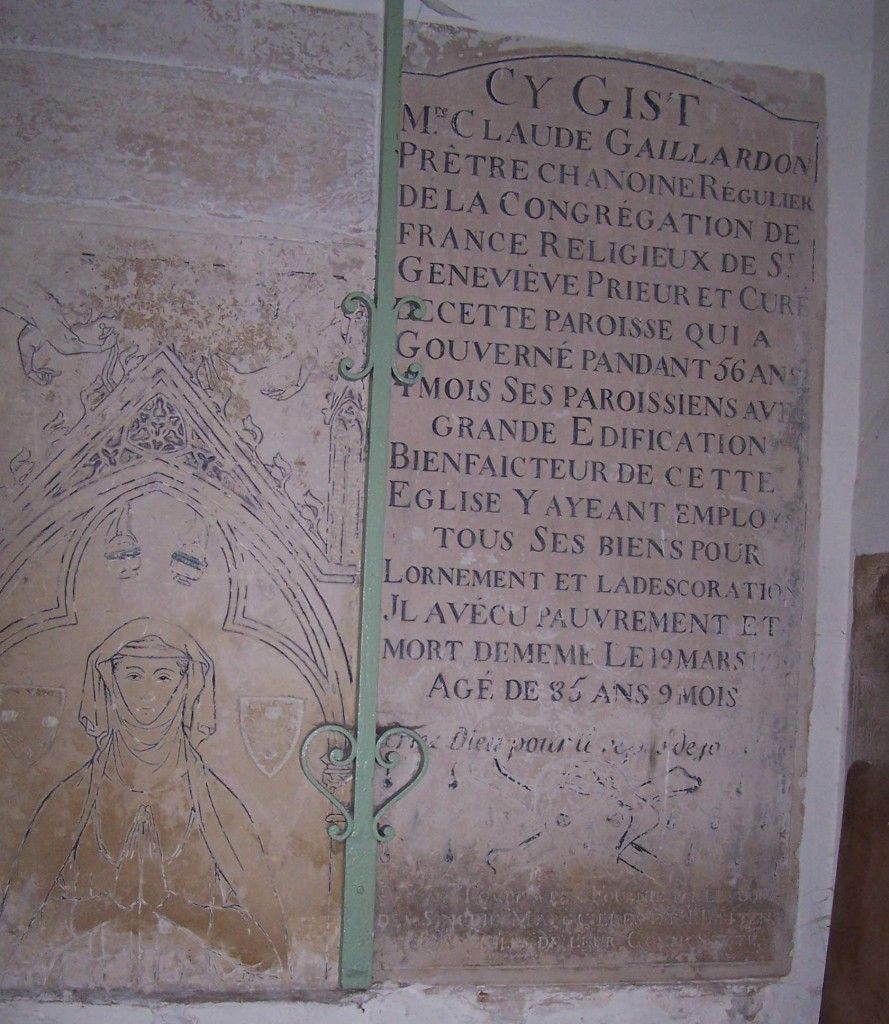 CY GIST
Mre CLAUDE GAILLARDON
PRÊTRE CHANOINE RÉGULIER
DE LA CONGRÉGATION DE
FRANCE RELIGIEUX DE St
GENEVIÈVE PRIEUR ET CURÉ
DE CETTE PAROISSE QUI A
GOUVERNÉ PANDANT 56 ANS
MOIS SES PAROISSIENS
GRANDE EDIFICATION
BIENFAICTEUR DE CETTE
EGLISE Y AYEANT
TOUS SES BIENS POUR
LORNEMENT ET LADESCORATION
JL AVÉCU PAUVREMENT ET
MORT DEMEME LE 19 MARS
AGÉ DE 85 ANS 9 MOIS
Dieu pour
DE LEUR